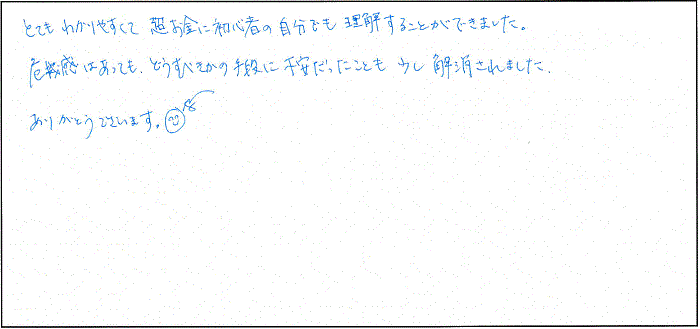 とてもわかりやすくて 超お金に初心者の自分でも理解することができました。
危機感はあっても、どうすべきかの手段に不安だったことも 少し解消されました。
ありがとうございます。